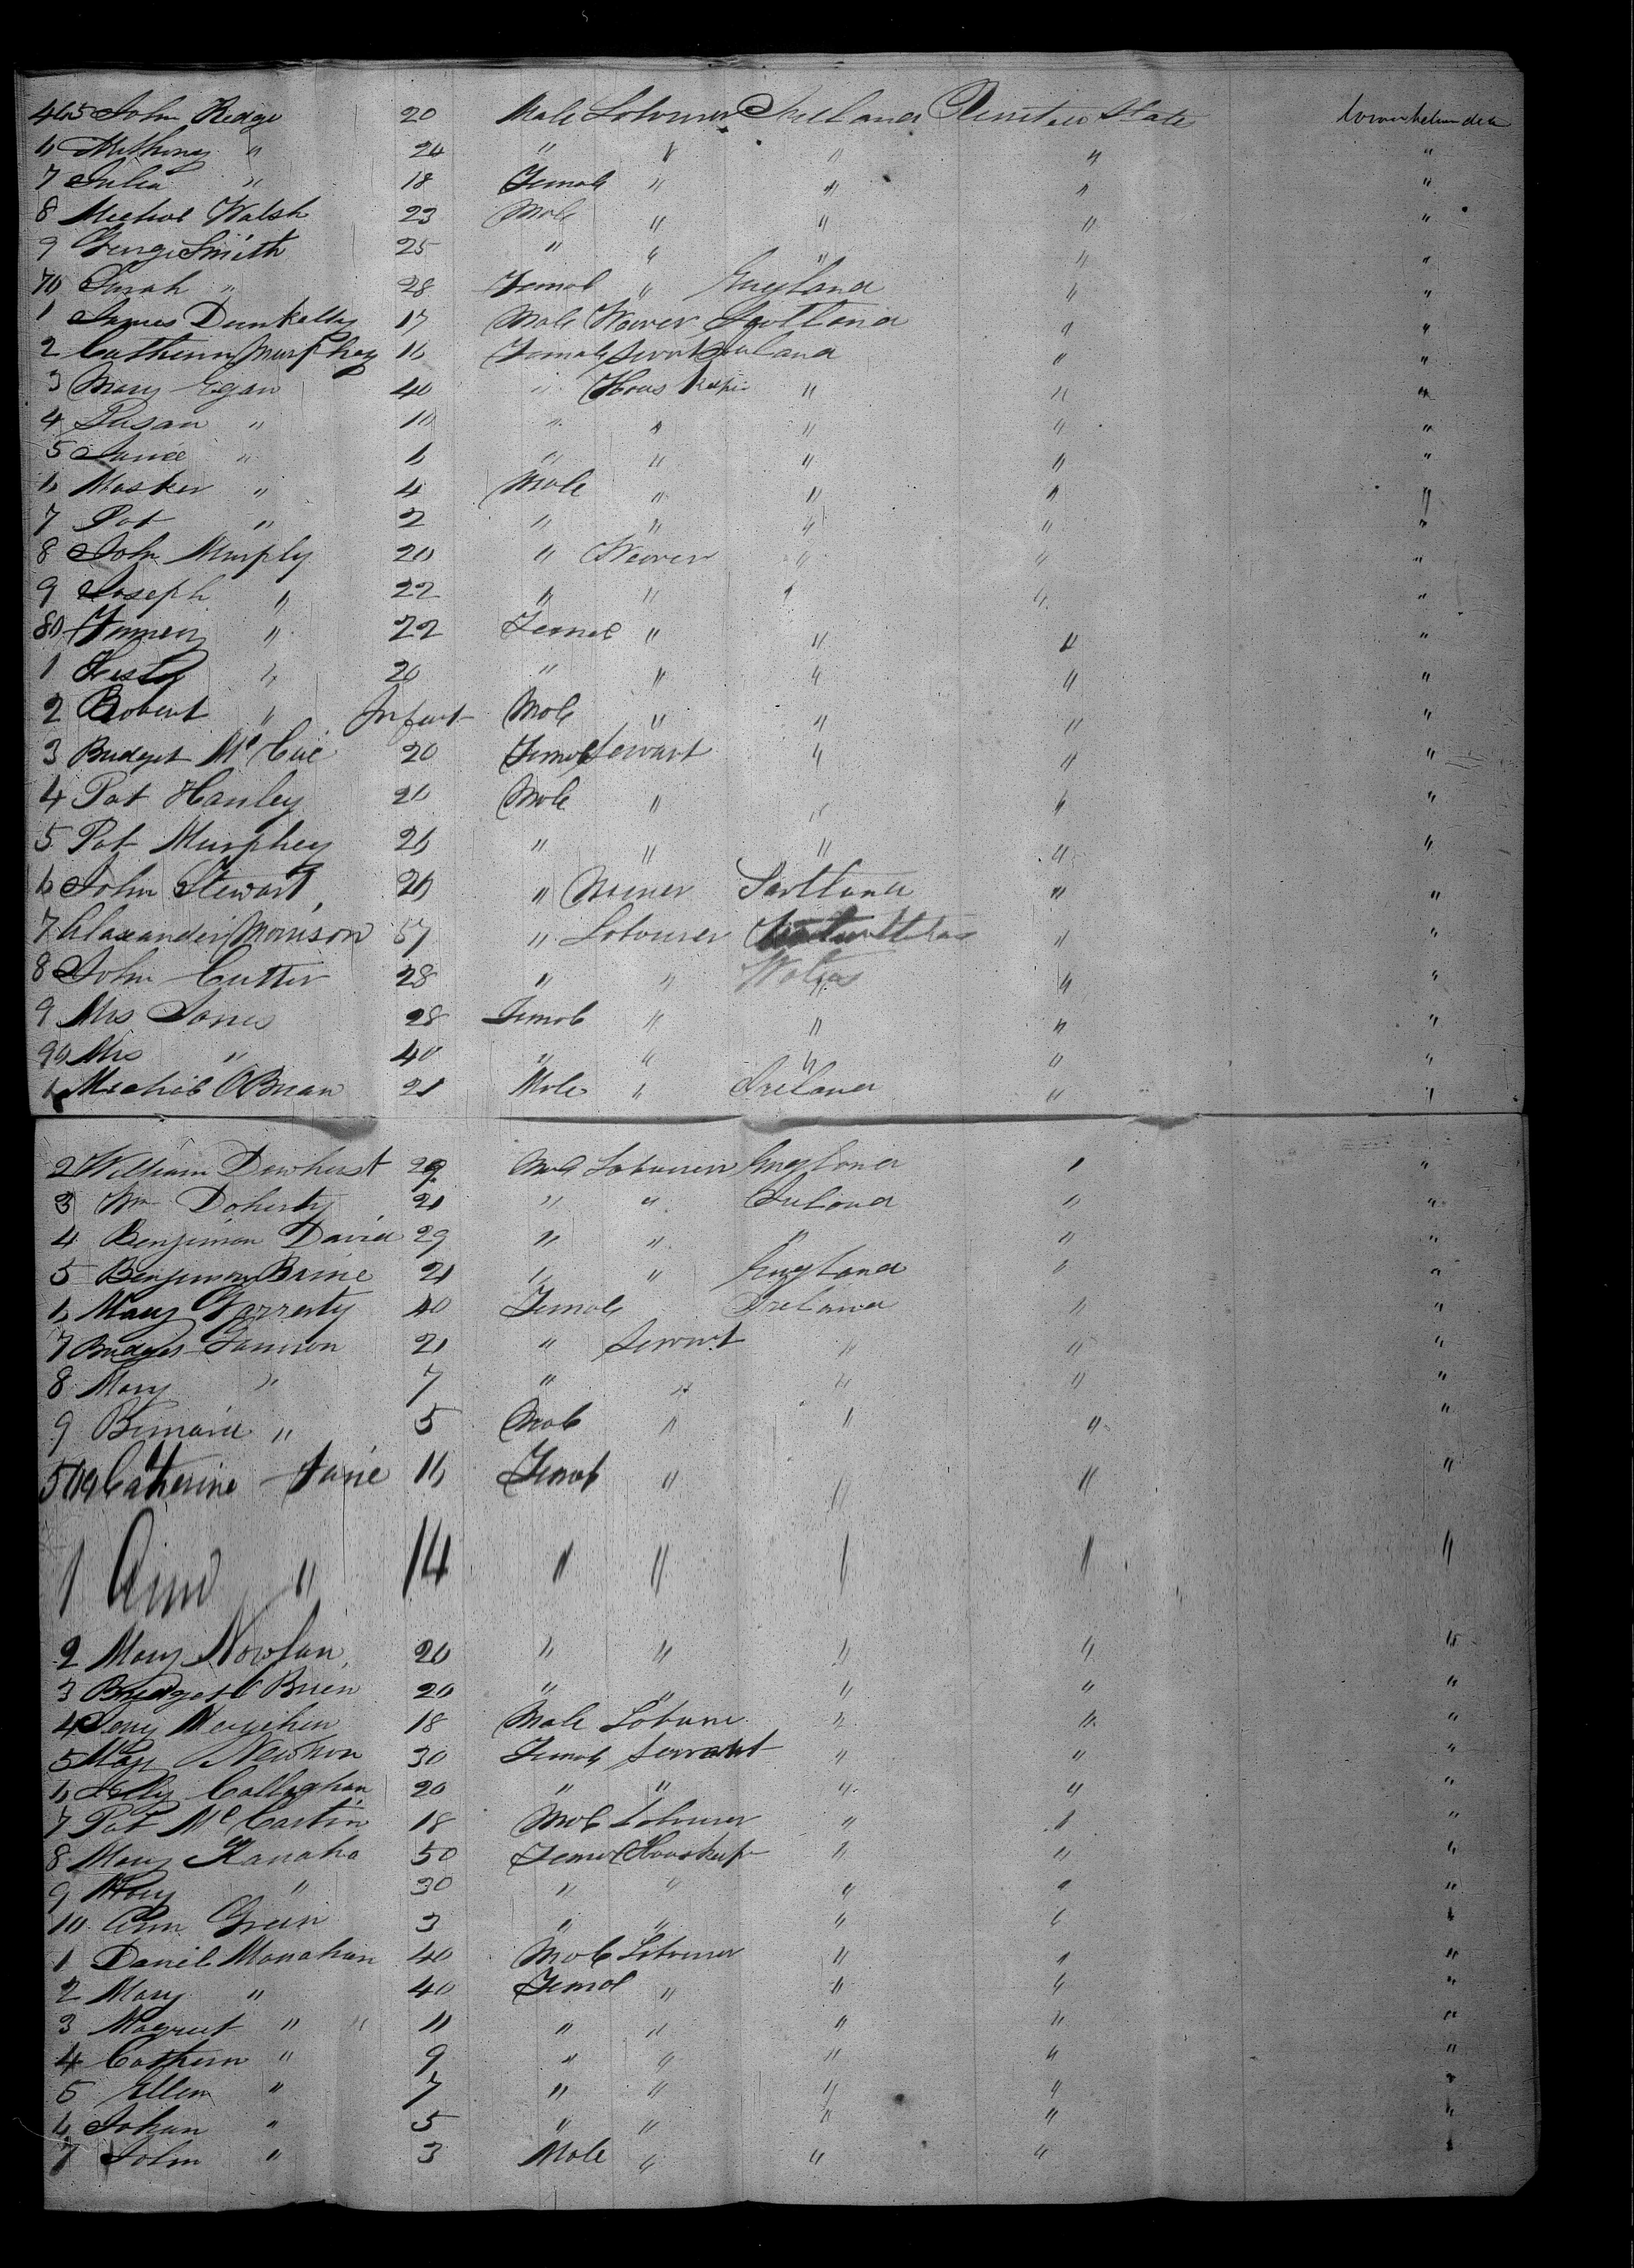 465 John Redge 20 Male Labourer Ireland United State
6 Anthony " 24 " " " " "
7 Julia " 18 Female " " " "
8 Michal Walsh 23 Male " " " "
9 George Smith 25 " " " " "
70 Sarah " 28 Femal " England " "
1 James Dunkally 17 Male Weaver Scotland " "
2 Cathrin Murphey 16 Female Servt Ireland " "
3 Mary Egan 40 " Hous keeper " " "
4 Susan " 10 " " " " "
5 Janie " 6 " " " " "
6 " 4 Male " " " "
7 Pat " 2 " " " " "
8 John Murphy 20 " Weaver " " "
9 Joseph " 22 " " " " "
80 " 22 Femal " " " "
1 Hesty " 20 " " " " "
2 Robert " Infant Male " " " "
3 Bridget Mc Cue 20 Femal Servant " " "
4 Pat Hanley 20 Male " " " "
5 Pat Murphey 26 " " " " "
6 John Stewart 26 " Scotland " "
7 Alaxander Morrison 57 " Labourer " "
8 John Cutter 28 " " Wales " "
9 Mrs Jones 28 Femal " " " "
90 Mrs " 40 " " " " "
1 Michal OBrian 21 Male " Ireland " "
2 William Dewhurst 29 Male Labourer England " "
3 Wm Doherty 21 " " Ireland " "
4 Benjimin David 29 " " " " "
5 Benjimin 21 " " England " "
6 Mary Garrerty 40 Female Ireland " "
7 Bridget 21 " Servant " " "
8 Mary " 7 " " " " "
9 " 5 Male " " " "
500 Catherine Janie 16 Femal " " " "
1 Ann " 14 " " " " "
2 Mary Nowlan 20 " " " " "
3 Bridget O Brien 20 " " " " "
4 18 Male Laburer " " "
5 Mary 30 Female Servant " " "
6 Callaghan 20 " " " " "
7 Pat Mc Cartin 18 Male Labourer " " "
8 Mary Kanaha 50 Femal Houskeeper " " "
9 Mary " 30 " " " " "
10 Ann Green 3 " " " " "
1 Daniel Monahan 40 Male Labourer " " "
2 Mary " 40 Femal " " " "
3 Magreet " " 11 " " " " "
4 Cathern " 9 " " " " "
5 Ellen " 7 " " " " "
6 Johan " 5 " " " " "
7 John " 3 Male " " " "